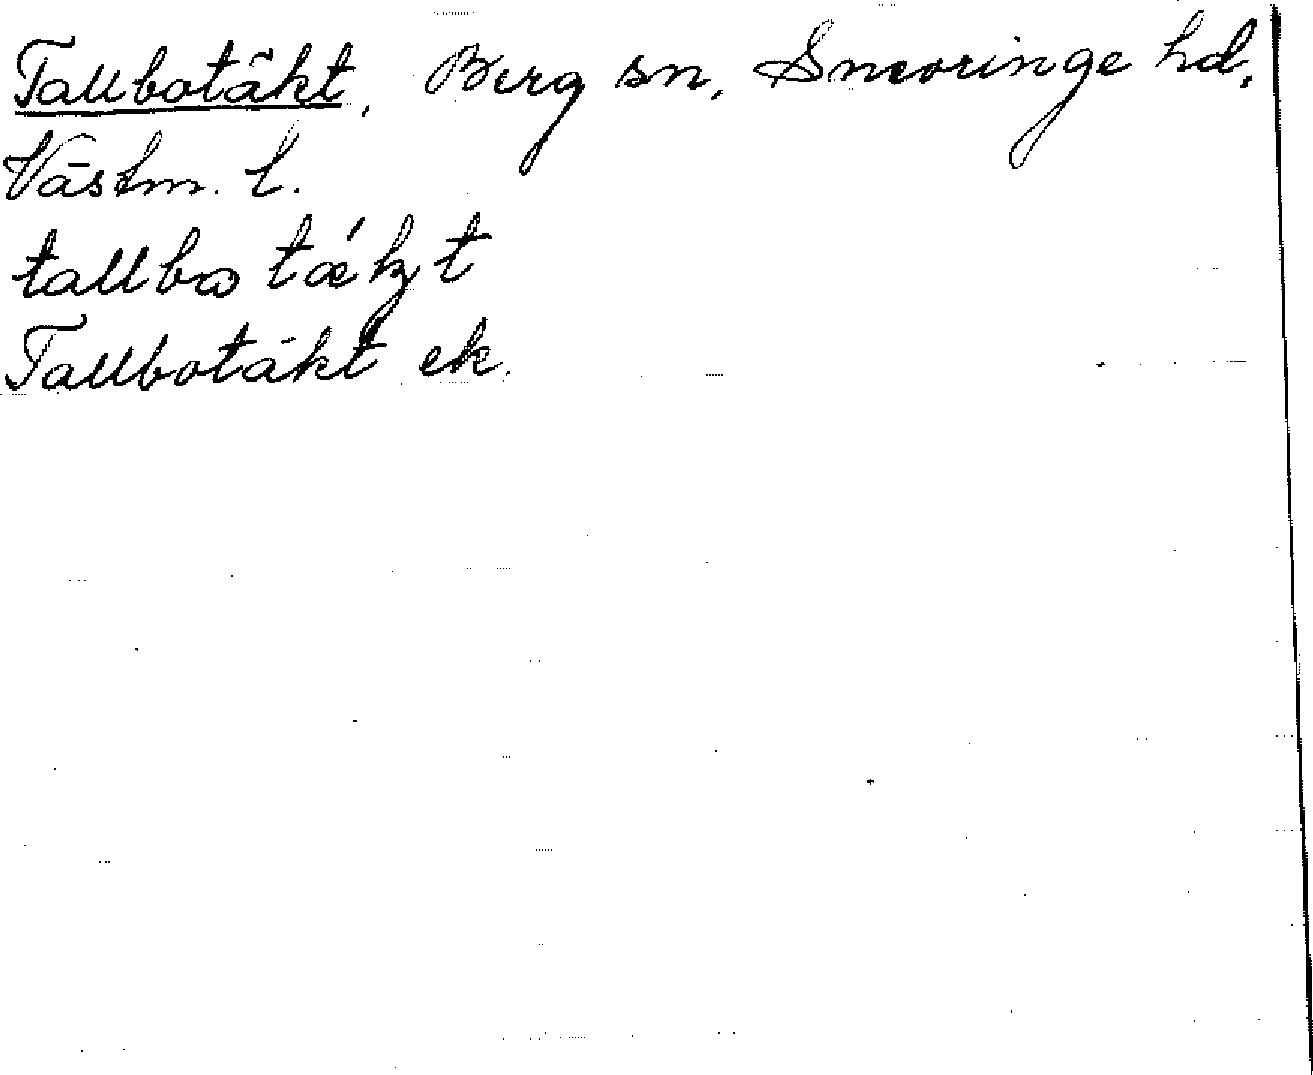 Tallbotäkt, Berg sn, Snevringe hd,
Västm. l.
tallbotäkt
Tallbotäkt ek.